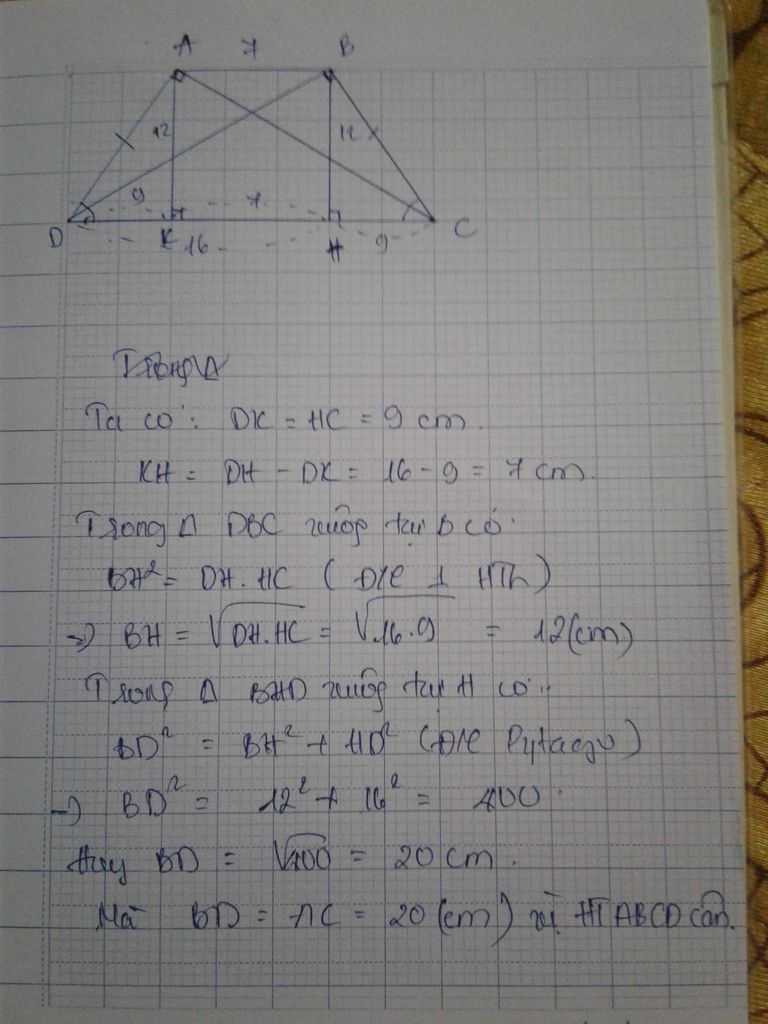 A 7 B
12 12
9 7
D K 16 H 9 C
Trong Δ
Ta có: DK = HC = 9 cm.
KH = DH - DK = 16 - 9 = 7 cm.
Trong Δ DBC vuông tại B có:
BH² = DH.HC ( ĐK 1 HTh)
=> BH = √DH.HC = √16.9 = 12(cm)
Trong Δ BHD vuông tại H có:
BD² = BH² + HD² (ĐK Pytago)
-> BD² = 12² + 16² = 400.
Hay BD = √400 = 20 cm.
Mà BD = AC = 20 (cm) vì HT ABCD cân.